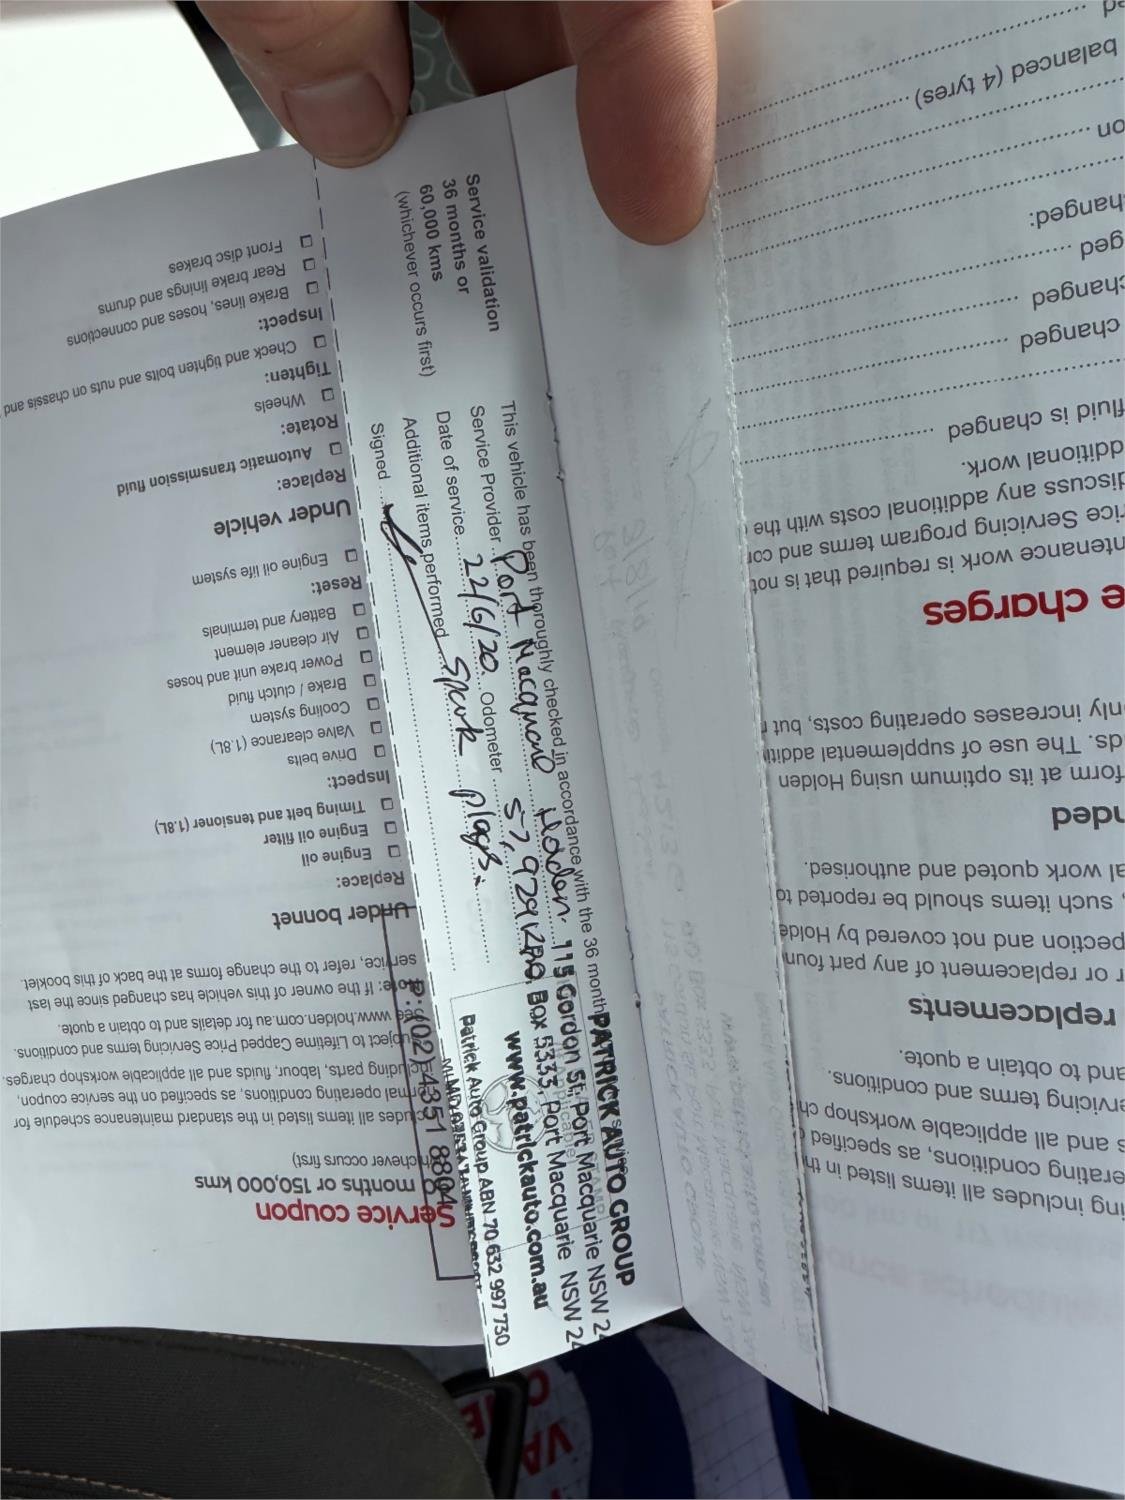 Service validation
36 months or
60,000 kms
(whichever occurs first)
This vehicle has been thoroughly checked in accordance with the 36 month
Service Provider Port Macquarie Holden.
Date of service 22/6/20 Odometer 57,929
Additional items performed Spark plugs.
Signed
PATRICK AUTO GROUP
115 Gordon St, Port Macquarie NSW 24
Box 5333, Port Macquarie NSW 24
www.patrickauto.com.au
Patrick Auto Group ABN 70 632 997 730
P: (02) 4351 8804
Service coupon
months or 150,000 kms
(whichever occurs first)
cludes all items listed in the standard maintenance schedule for
rmal operating conditions, as specified on the service coupon,
cluding parts, labour, fluids and all applicable workshop charges.
ubject to Lifetime Capped Price Servicing terms and conditions.
See www.holden.com.au for details and to obtain a quote.
Note: If the owner of this vehicle has changed since the last
service, refer to the change forms at the back of this booklet.
Under bonnet
Replace:
Engine oil
Engine oil filter
Timing belt and tensioner (1.8L)
Inspect:
Drive belts
Valve clearance (1.8L)
Cooling system
Brake / clutch fluid
Power brake unit and hoses
Air cleaner element
Battery and terminals
Reset:
Engine oil life system
Under vehicle
Replace:
Automatic transmission fluid
Rotate:
Wheels
Tighten:
Check and tighten bolts and nuts on chassis and
Inspect:
Brake lines, hoses and connections
Rear brake linings and drums
Front disc brakes
ing includes all items listed in th
erating conditions, as specified
s and all applicable workshop ch
ervicing terms and conditions.
and to obtain a quote.
replacements
r or replacement of any part foun
pection and not covered by Holde
, such items should be reported to
al work quoted and authorised.
nded
form at its optimum using Holden
ds. The use of supplemental additi
nly increases operating costs, but
e charges
ntenance work is required that is not
rice Servicing program terms and cor
discuss any additional costs with the
additional work.
fluid is changed
changed
changed
ged
hanged:
on
balanced (4 tyres)
ed